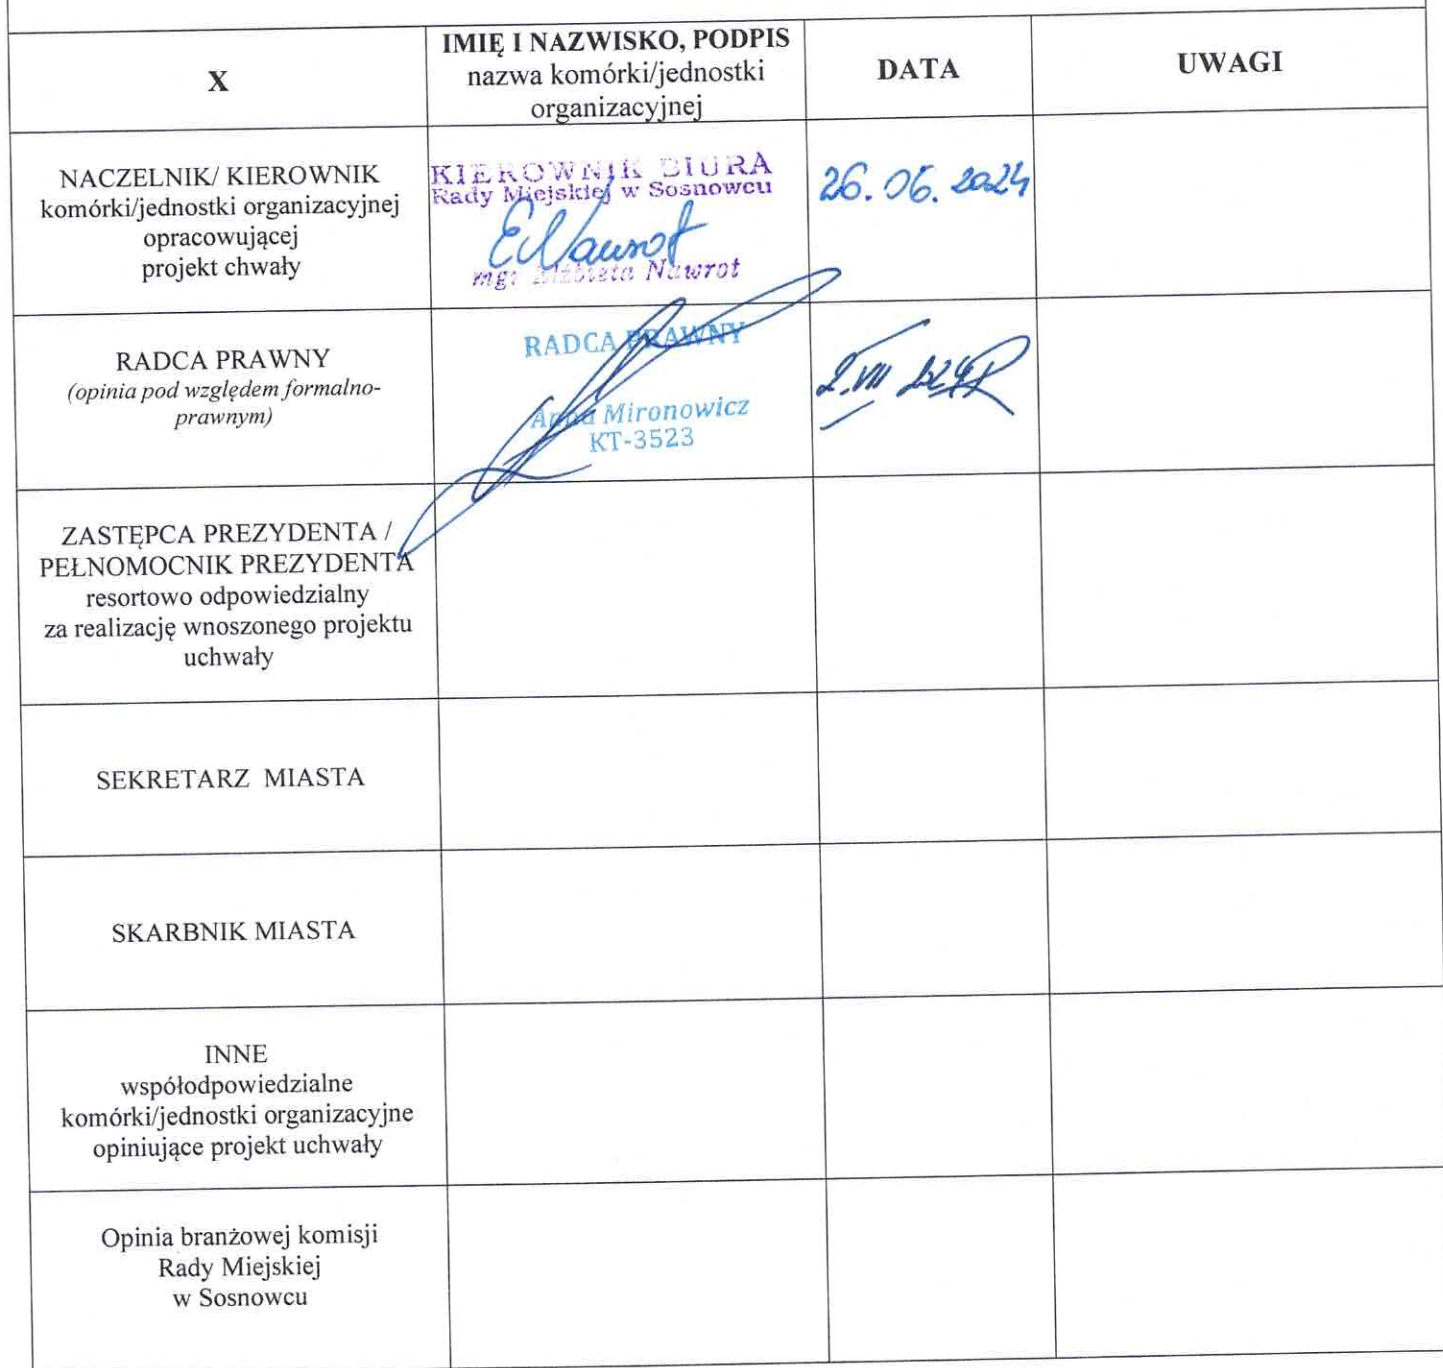 X
IMIĘ I NAZWISKO, PODPIS
nazwa komórki/jednostki
organizacyjnej
DATA
UWAGI
NACZELNIK/ KIEROWNIK
komórki/jednostki organizacyjnej
opracowującej
projekt chwały
KIEROWNIK BIURA
Rady Miejskiej w Sosnowcu
ENawrot
mgr Elżbieta Nawrot
26.06.2024
RADCA PRAWNY
(opinia pod względem formalno-
prawnym)
RADCA PRAWNY
Anna Mironowicz
KT-3523
2.VII 2024R
ZASTĘPCA PREZYDENTA /
PEŁNOMOCNIK PREZYDENTA
resortowo odpowiedzialny
za realizację wnoszonego projektu
uchwały
SEKRETARZ MIASTA
SKARBNIK MIASTA
INNE
współodpowiedzialne
komórki/jednostki organizacyjne
opiniujące projekt uchwały
Opinia branżowej komisji
Rady Miejskiej
w Sosnowcu